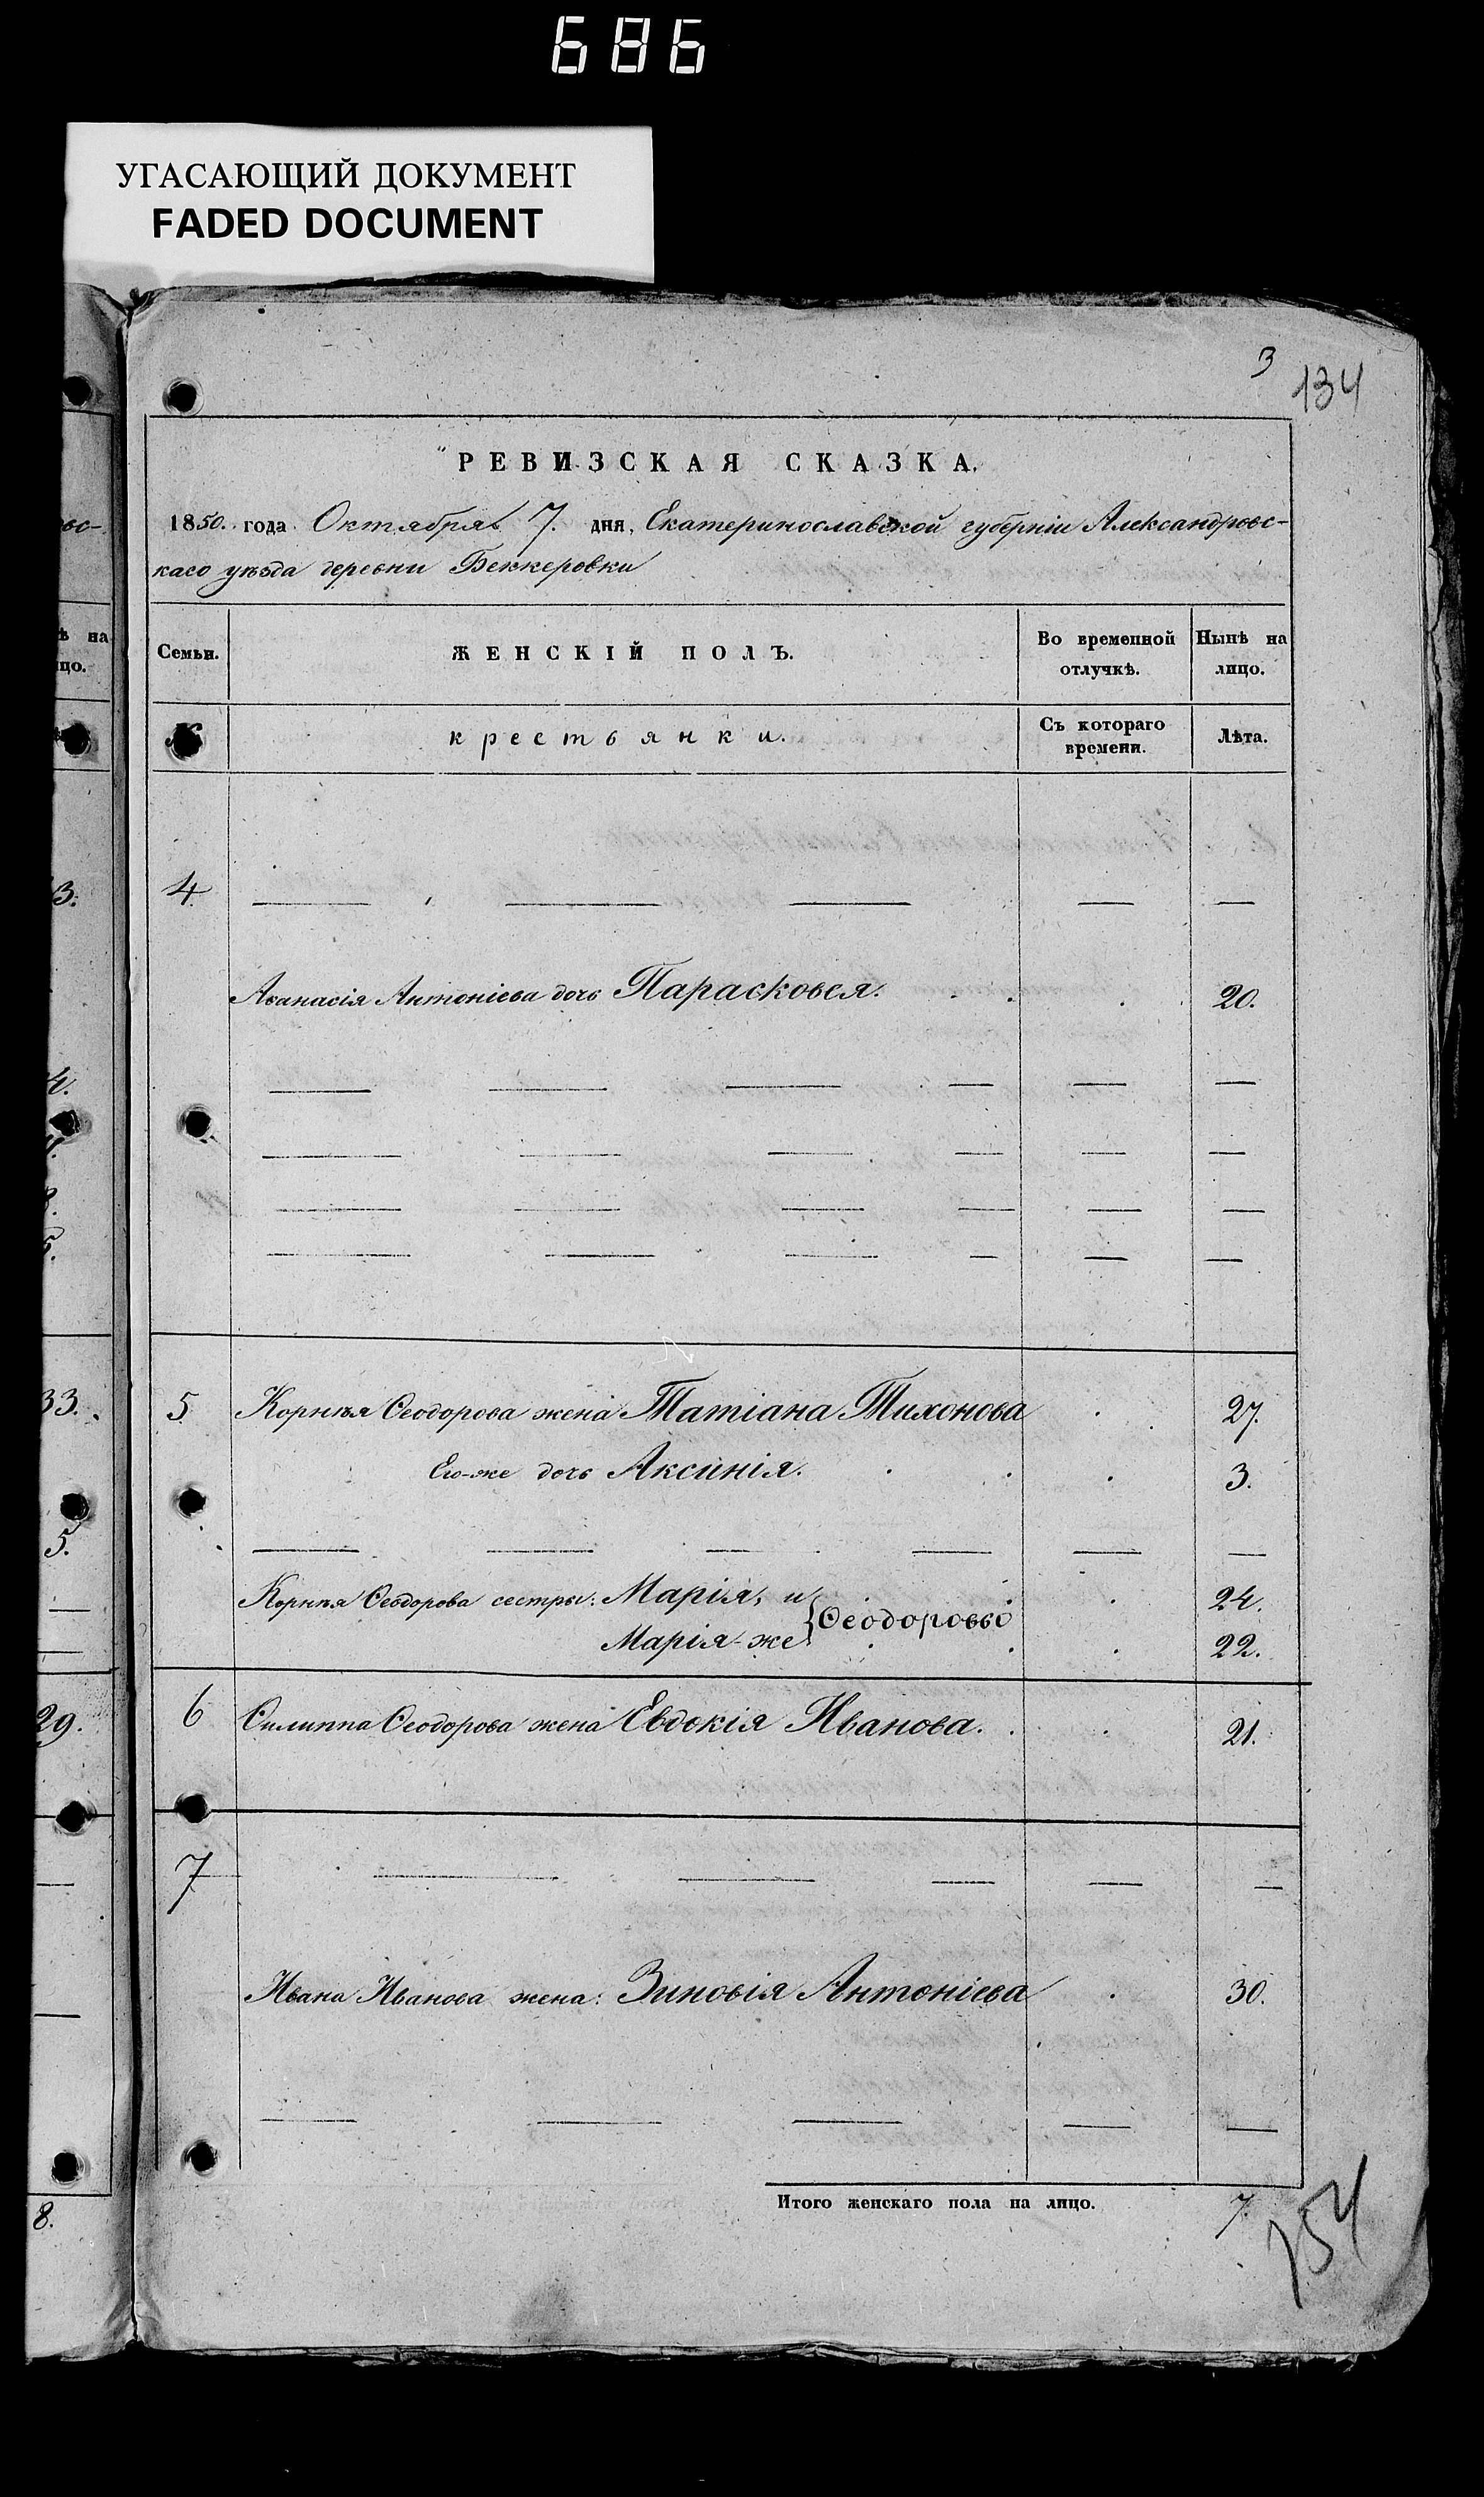 686
УГАСАЮЩИЙ ДОКУМЕНТ
FADED DOCUMENT
3
134
РЕВИЗСКАЯ СКАЗКА.
1850. года Октября 7. дня, Екатеринославской губерніи Александровс-
каго уѣзда деревни Беккеровки
Семьи. ЖЕНСКІЙ ПОЛЪ. Во временной отлучкѣ. Нынѣ на лицо.
№ крестьянки. Съ котораго времени. Лѣта.
4. — — — — —
Аѳанасія Антоніева дочь Парасковея. 20.
— — — — — —
— — — — — —
— — — — — —
— — — — — —
5 Корнѣя Ѳеодорова жена Татіана Тихонова 27.
Его-же дочь Аксинія. 3.
— — — — — —
Корнѣя Ѳеодорова сестры: Марія, и 24.
{Ѳеодоровы
Марія-же 22.
6 Филиппа Ѳеодорова жена Евдокія Иванова. 21.
7 — — — — —
Ивана Иванова жена: Зиновія Антоніева 30.
— — — — —
Итого женскаго пола на лицо. 7.
вс-
ѣ на
цо.
3.
4.
33.
5.
29.
8.